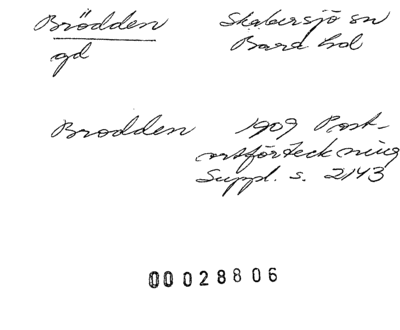 Brödden Skabersjö sn
gd Bara hd
Brodden 1909 Post-
ortförteckning
Suppl. s. 2143
00028806